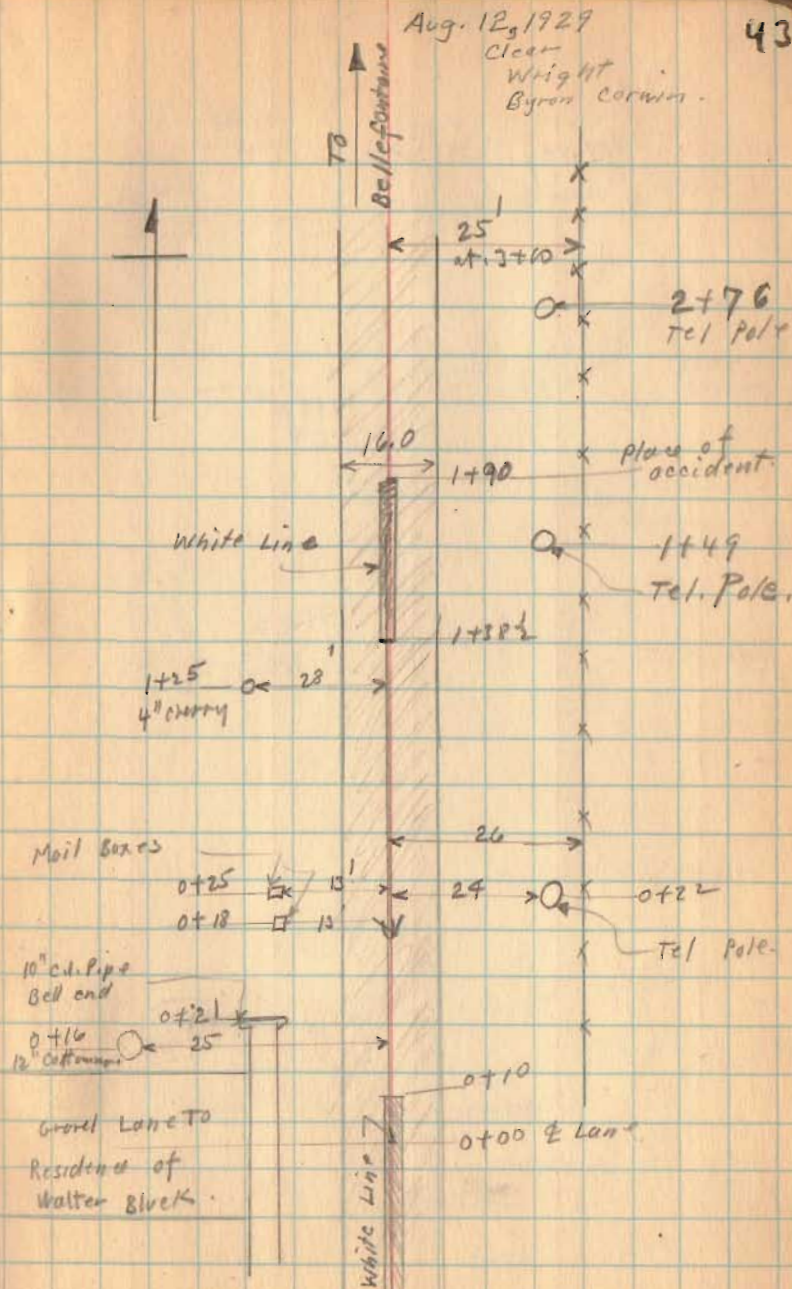 Aug. 12, 1929
43
Clear
Wright
Byron Corwin.
To
Bellefontaine
25'
at 3+60
2+76
Tel Pole
16.0
1+90
Place of
accident.
White Line
1+49
Tel. Pole.
1+38½
1+25
28'
4" cherry
26
Mail Boxes
0+25
13'
24
0+22
0+18
13'
Tel Pole.
10" c.i. Pipe
Bell end
0+21
0+16
25
12" Cottonwood
0+10
Gravel Lane To
0+00 ℄ Lane
Residence of
Walter Bluck.
White Line